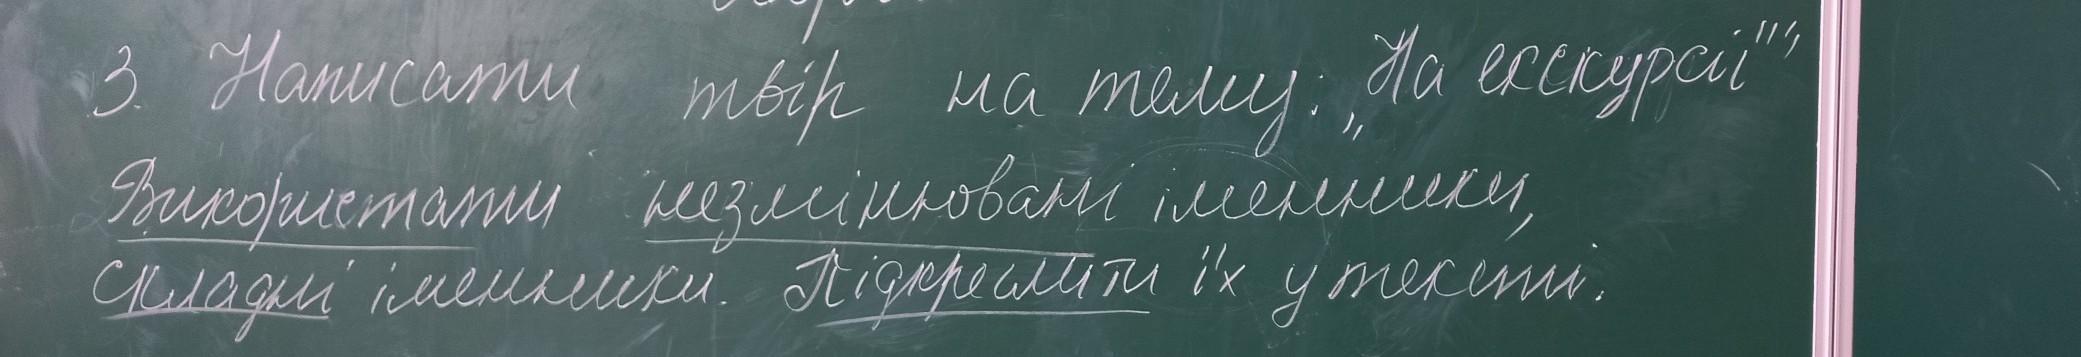 3. Написати твір на тему: „На екскурсії"
Використати незмінювані іменники,
складні іменники. Підкреслити їх у тексті.